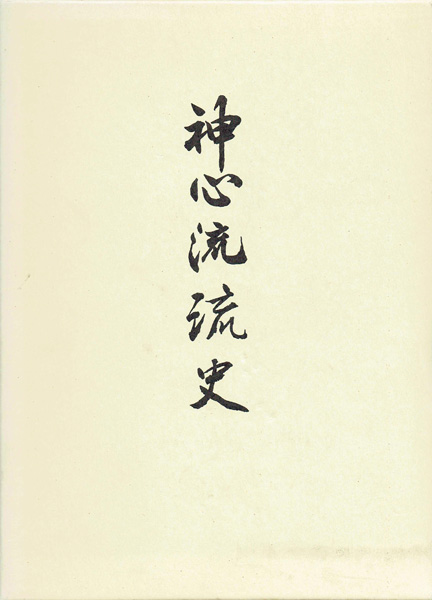 神心流琉史